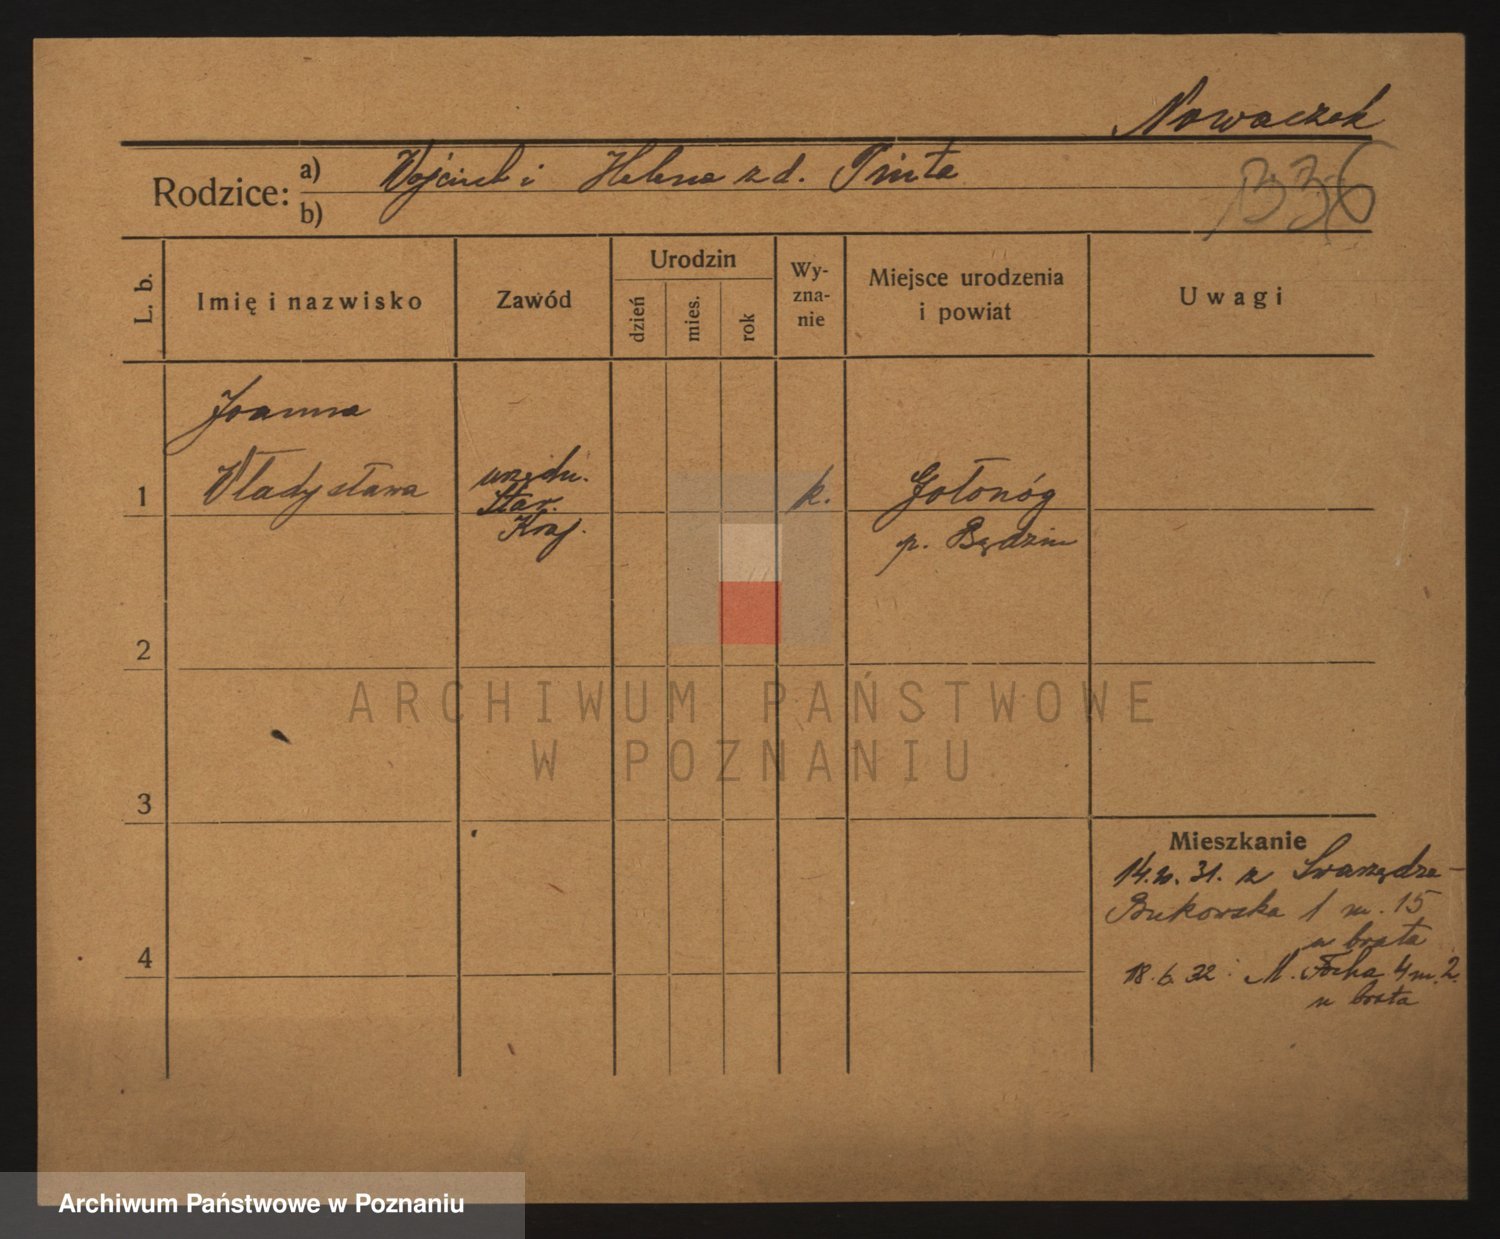 Nowaczek
Rodzice: a) Wojciech i Helena z d. Pinta
b)
336
L. b.
Imię i nazwisko
Zawód
Urodzin
dzień
mies.
rok
Wy-
zna-
nie
Miejsce urodzenia
i powiat
Uwagi
Joanna
1 Władysława
urzędn.
Star.
Kraj.
k.
Gołonóg
p. Będzin
2
ARCHIWUM PAŃSTWOWE
W POZNANIU
3
Mieszkanie
31. z Swarzędza-
Bukowska 1 m. 15
u brata
4
18.6.32 M. Focha 4 m. 2.
u brata
Archiwum Państwowe w Poznaniu